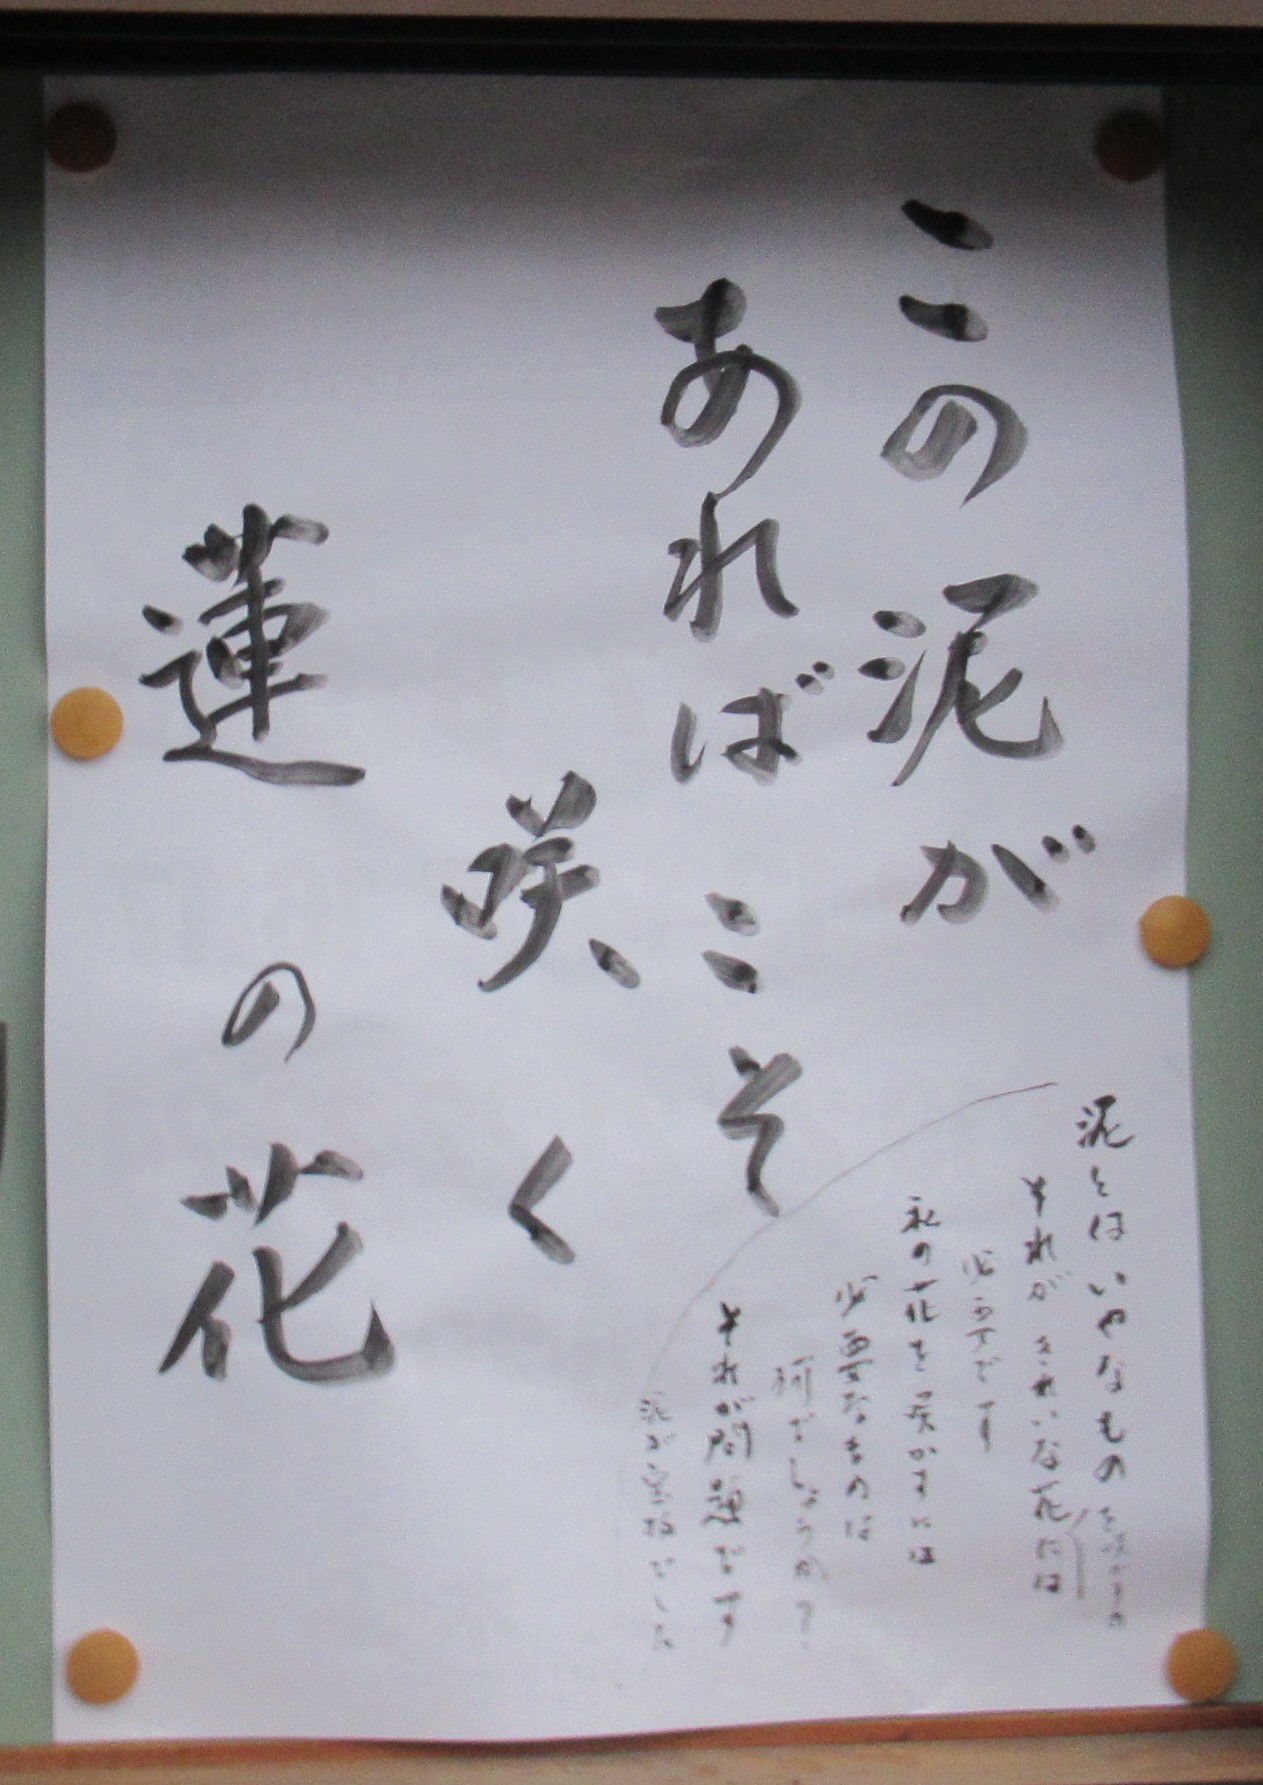 この泥が
あればこそ
咲く
蓮の花
泥とはいやなもの
それがきれいな花には
を咲かすの
必要です
私の花を咲かすには
必要なものは
何でしょうか?
それが問題です
泥が